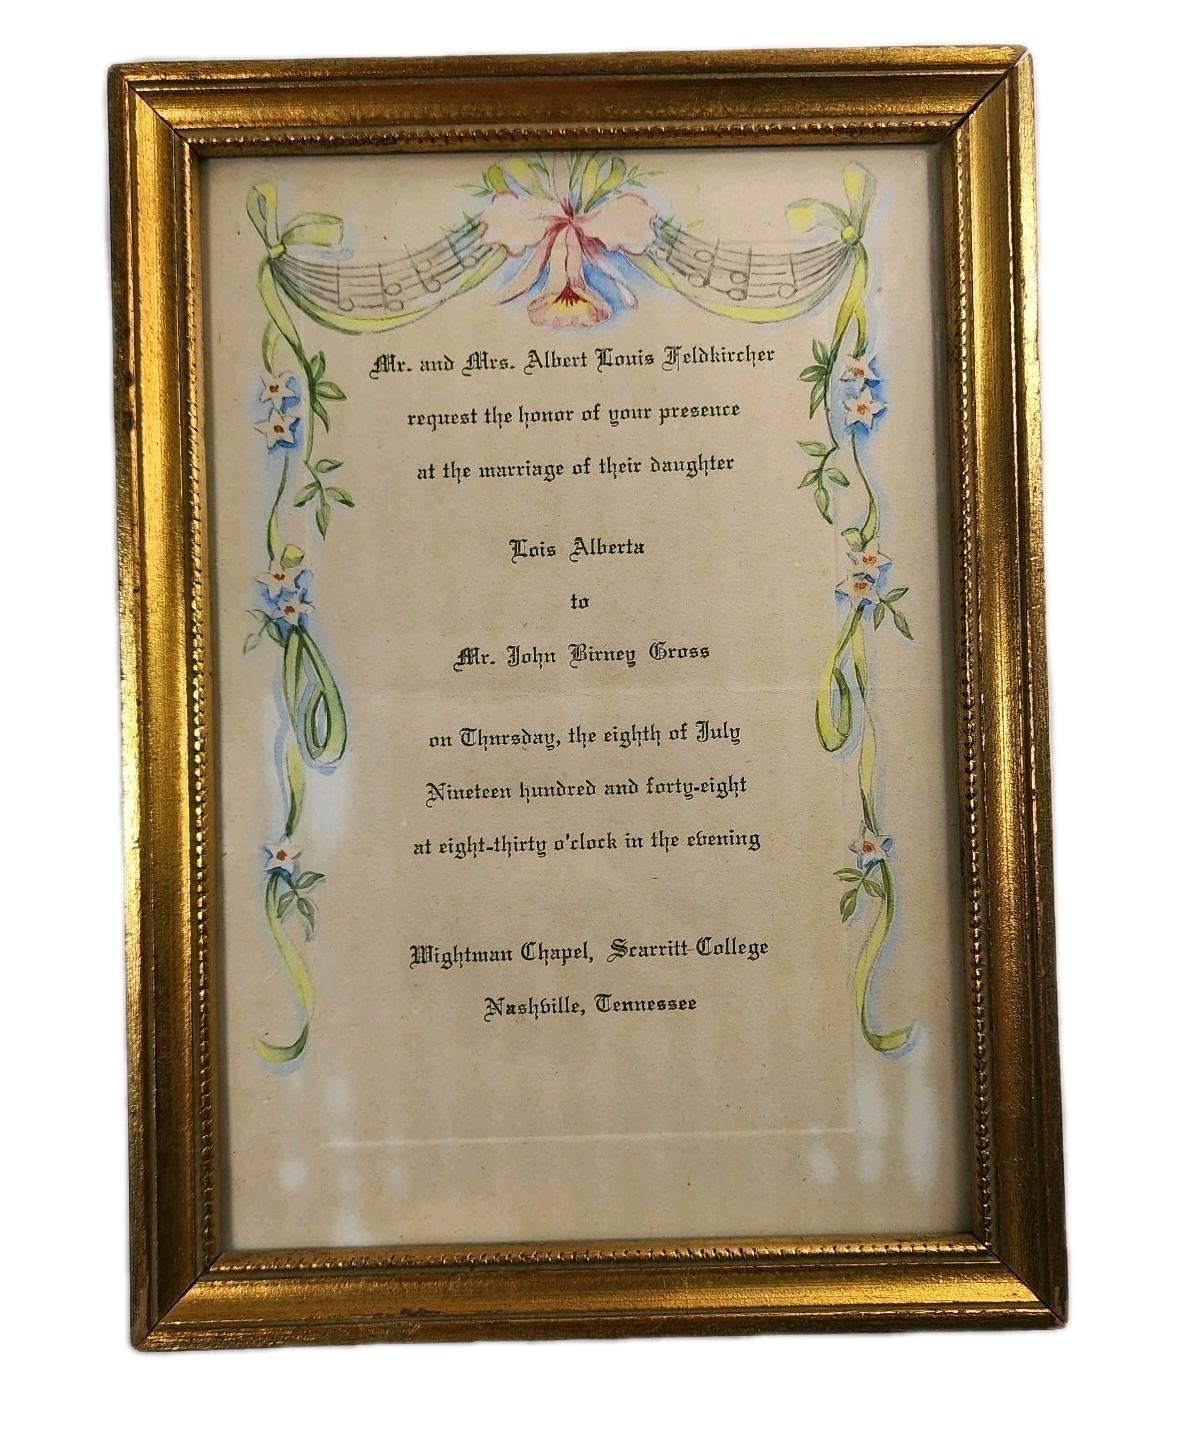 Mr. and Mrs. Albert Louis Feldkircher
request the honor of your presence
at the marriage of their daughter
Lois Alberta
to
Mr. John Birney Gross
on Thursday, the eighth of July
Nineteen hundred and forty-eight
at eight-thirty o'clock in the evening
Wightman Chapel, Scarritt College
Nashville, Tennessee